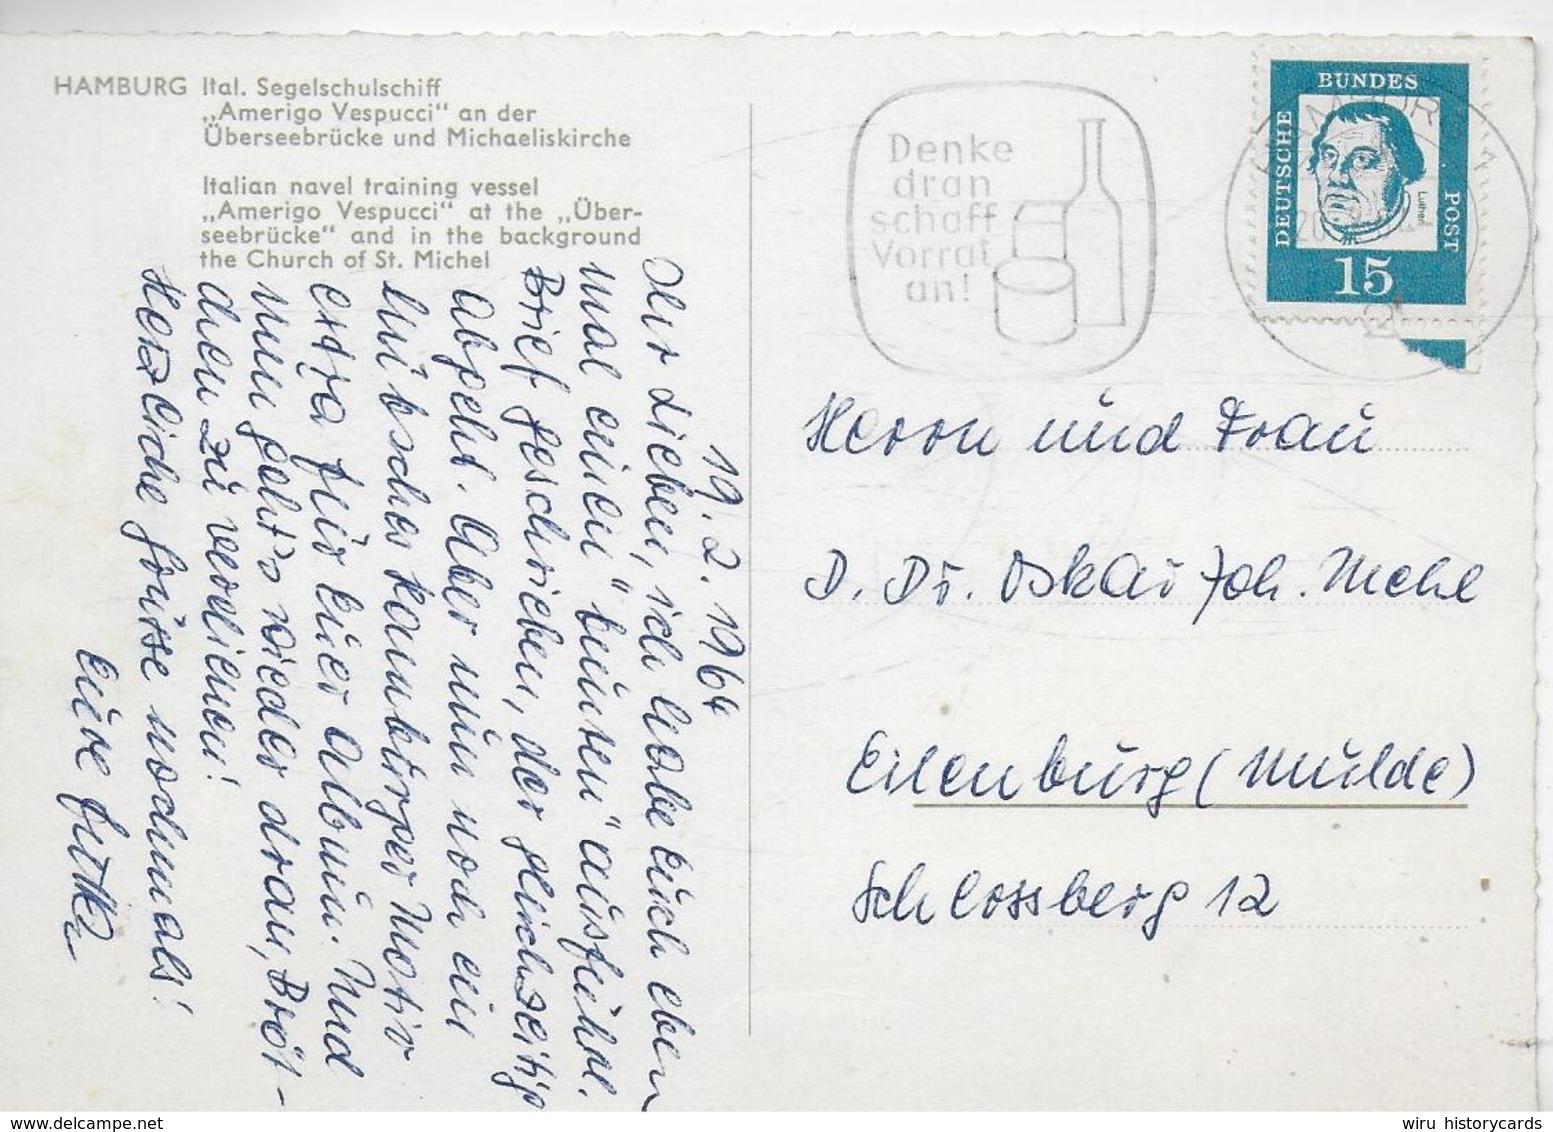 HAMBURG Ital. Segelschulschiff
„Amerigo Vespucci“ an der
Überseebrücke und Michaeliskirche
Italian navel training vessel
„Amerigo Vespucci“ at the „Über-
seebrücke“ and in the background
the Church of St. Michel
19. 2. 1964
Ihr Lieben, ich habe Euch eben
mal einen "bunten"
Brief geschrieben, der gleichzeitig
abgeht. Aber nun noch ein
hübsches Hamburger Motiv
extra für Euer Album. Und
nun geht's wieder dran, Bröt-
chen zu verdienen!
Herzliche Grüsse nochmals!
Eure
Denke
dran
schaff
Vorrat
an!
DEUTSCHE
BUNDES
POST
Luther
15
Herrn und Frau
D. Dr. Oskar Joh. Mehl
Eilenburg (Mulde)
Schlossberg 12
wiru historycards